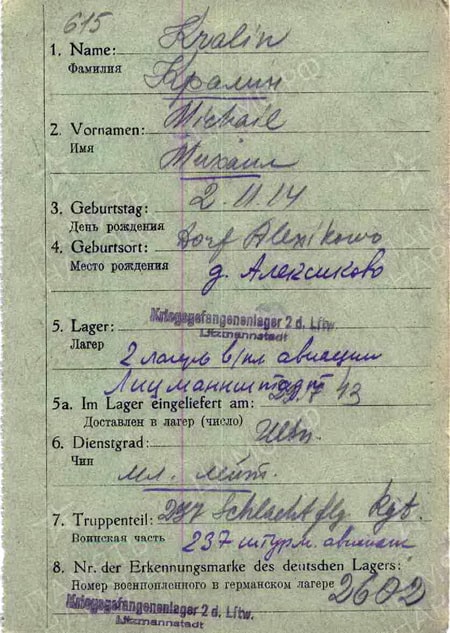 615
Kralin
1. Name:
Фамилия
Кралин
Michail
2. Vornamen:
Имя
Михаил
3. Geburtstag: 2. 11. 14
День рождения
Dorf Alexikowo
4. Geburtsort:
Место рождения
д. Алексиково
Kriegsgefangenenlager 2 d. Lftw.
Litzmannstadt
5. Lager:
Лагерь
2 лагерь в/пл авиации
Лицманнштадт
5a. Im Lager eingeliefert am: 43
Доставлен в лагерь (число)
6. Dienstgrad:
Чин
мл. лейт.
7. Truppenteil: 237 Schlachtflg. Rgt.
Воинская часть 237 штурм. авиаполк
8. Nr. der Erkennungsmarke des deutschen Lagers:
Номер военнопленного в германском лагере 2602
Kriegsgefangenenlager 2 d. Lftw.
Litzmannstadt